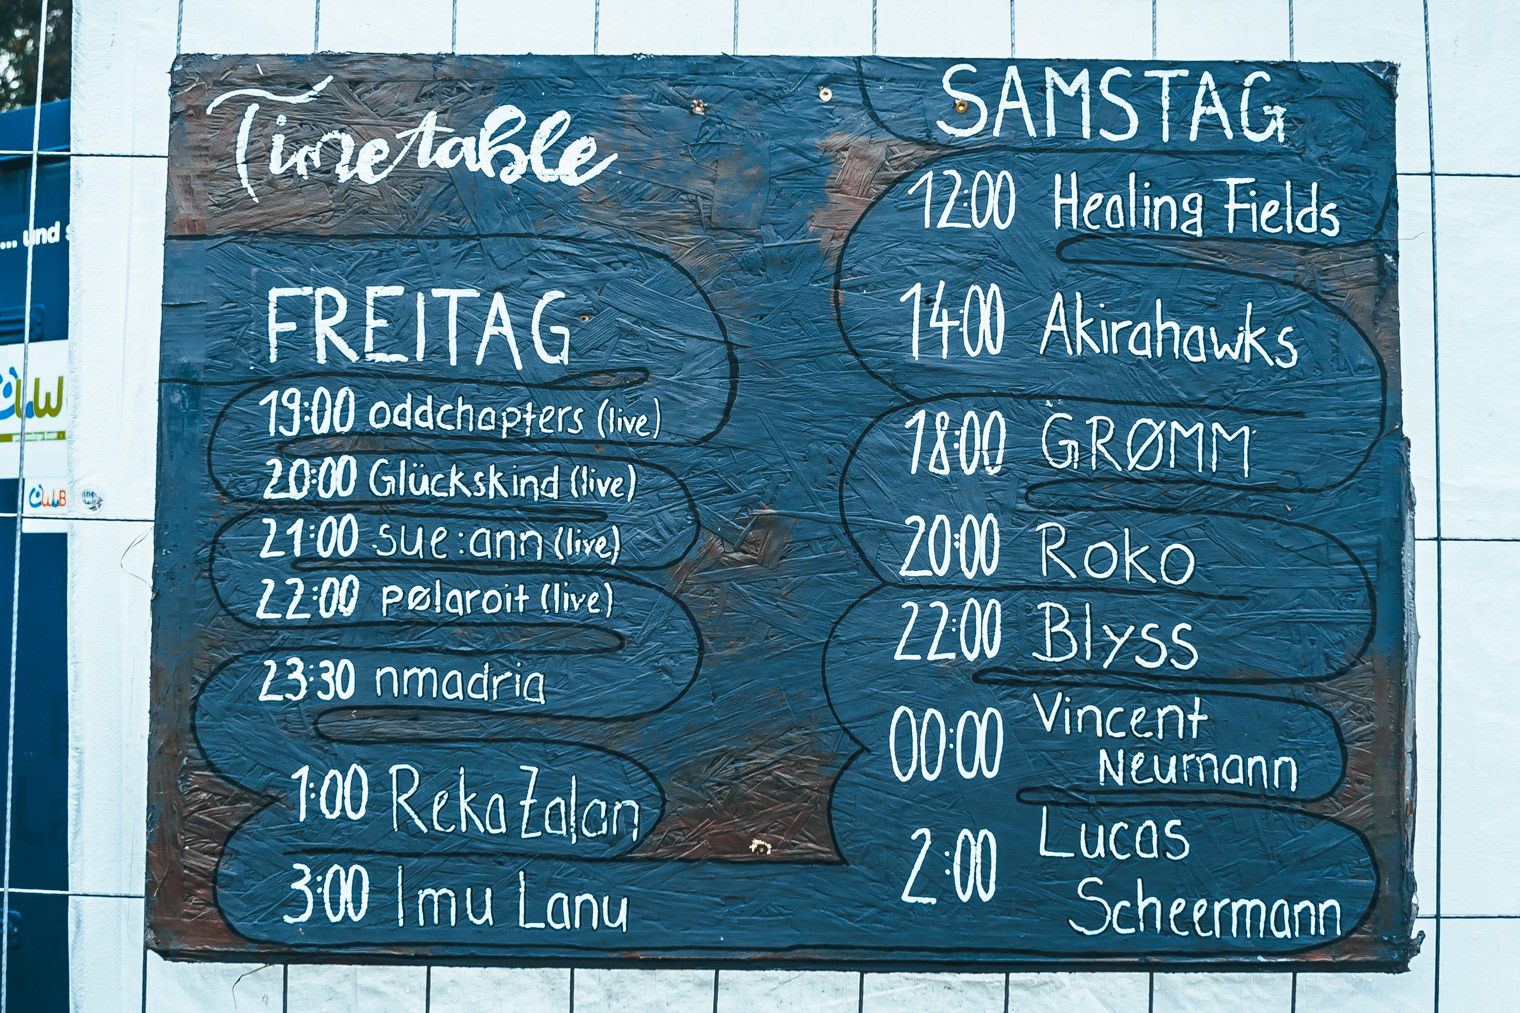 Timetable
FREITAG
19:00 oddchapters (live)
20:00 Glückskind (live)
21:00 sue:ann (live)
22:00 pølaroit (live)
23:30 nmadria
1:00 Reka Zalan
3:00 Imu Lanu
SAMSTAG
12:00 Healing Fields
14:00 Akirahawks
18:00 GRØMM
20:00 Roko
22:00 Blyss
00:00 Vincent
Neumann
2:00 Lucas
Scheermann
... und